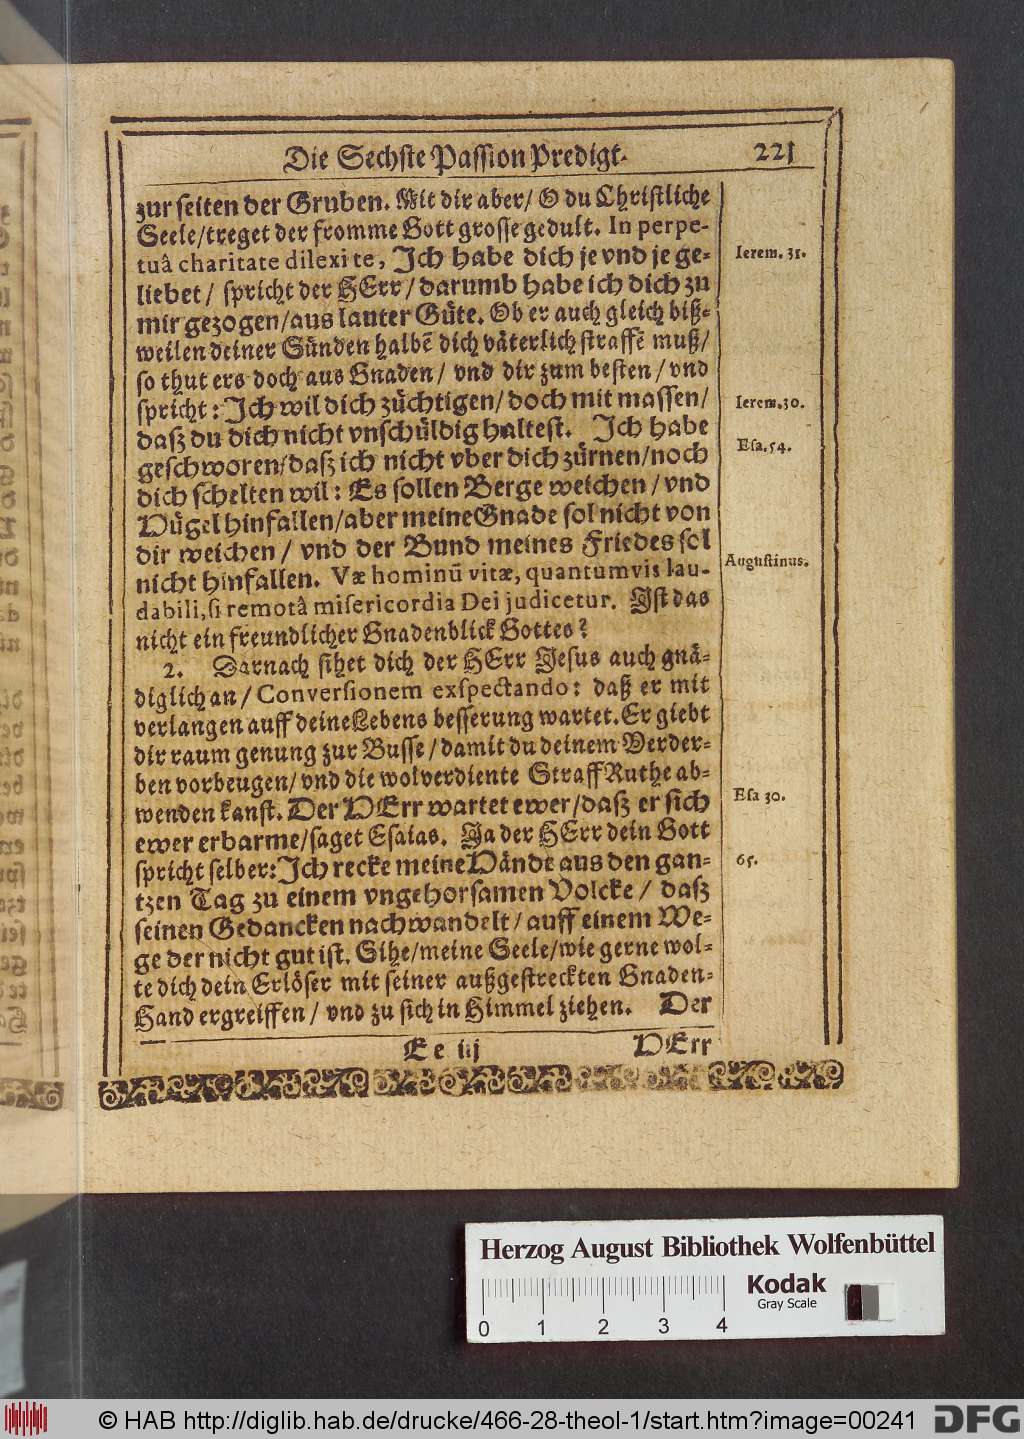 Die Sechste Passion Predigt. 221
zur seiten der Gruben. Mit dir aber/ O du Christliche
Seele/treget der fromme Gott grosse gedult. In perpe-
tuâ charitate dilexi te, Ich habe dich je vnd je ge-
Ierem. 31.
liebet/ spricht der HErr/ darumb habe ich dich zu
mir gezogen/aus lauter Güte. Ob er auch gleich biß-
weilen deiner Sünden halbē dich väterlich straffē muß/
so thut ers doch aus Gnaden/ vnd dir zum besten/ vnd
spricht: Ich wil dich züchtigen/ doch mit massen/
Ierem. 30.
daß du dich nicht vnschüldig haltest. Ich habe
Esa. 54.
geschworen/daß ich nicht vber dich zürnen/noch
dich schelten wil: Es sollen Berge weichen/ vnd
Hügel hinfallen/aber meine Gnade sol nicht von
dir weichen/ vnd der Bund meines Friedes sol
Augustinus.
nicht hinfallen. Væ hominū vitæ, quantumvis lau-
dabili, si remotâ misericordia Dei judicetur. Ist das
nicht ein freundlicher Gnadenblick Gottes?
2. Darnach sihet dich der HErr Jesus auch gnä-
diglich an/ Conversionem exspectando: daß er mit
verlangen auff deine Lebens besserung wartet. Er giebt
dir raum genung zur Busse/ damit du deinem Verder-
ben vorbeugen/ vnd die wolverdiente Straff Ruthe ab-
wenden kanst. Der HErr wartet ewer/daß er sich
Esa 30.
ewer erbarme/saget Esaias. Ja der HErr dein Gott
spricht selber: Ich recke meine Hände aus den gan-
65.
tzen Tag zu einem vngehorsamen Volcke/ daß
seinen Gedancken nachwandelt/ auff einem We-
ge der nicht gut ist. Sihe/meine Seele/wie gerne wol-
te dich dein Erlöser mit seiner außgestreckten Gnaden-
Hand ergreiffen/ vnd zu sich in Himmel ziehen. Der
Ee iij HErr
Herzog August Bibliothek Wolfenbüttel
Kodak
Gray Scale
0 1 2 3 4
© HAB http://diglib.hab.de/drucke/466-28-theol-1/start.htm?image=00241
DFG